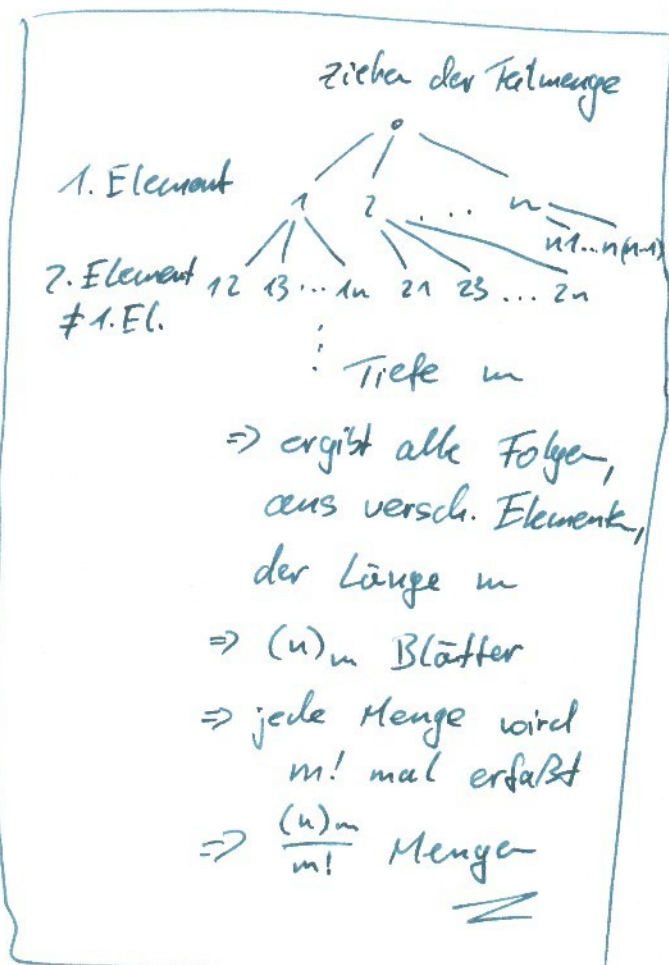 ziehen der Teilmenge
1. Element
1 2 . . . n
n1...n(n-1)
2. Element 12 13 ... 1n 21 23 ... 2n
≠ 1. El.
⋮ Tiefe m
=> ergibt alle Folgen,
aus versch. Elementen,
der Länge m
=> (n)m Blätter
=> jede Menge wird
m! mal erfaßt
=> (n)m/m! Mengen